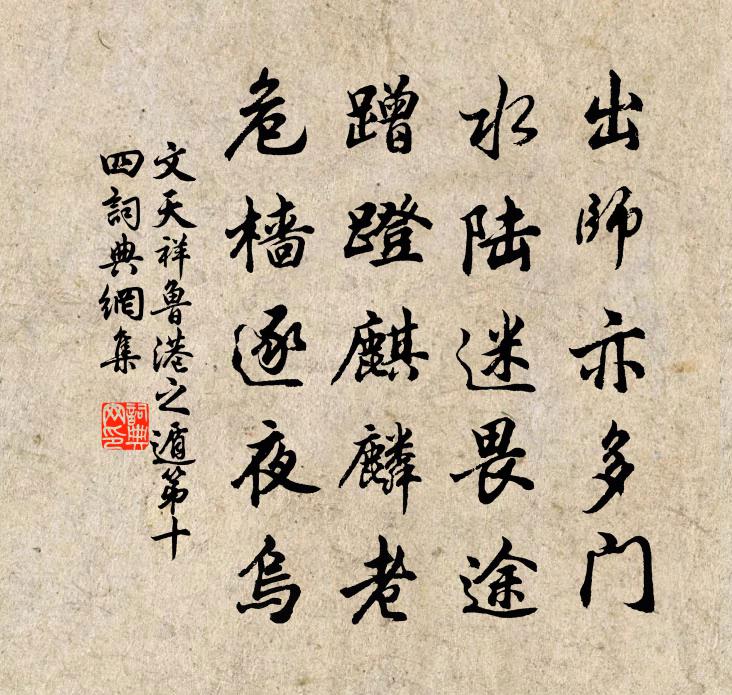 出師亦多門
水陆迷畏途
蹭蹬麒麟老
危檣逐夜烏
文天祥魯港之遁第十
四詞典網集
詞典
网印